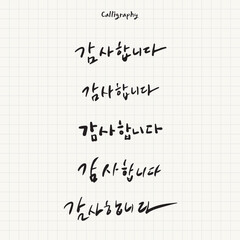 Calligraphy
감사합니다
감사합니다
감사합니다
감사합니다
감사합니다